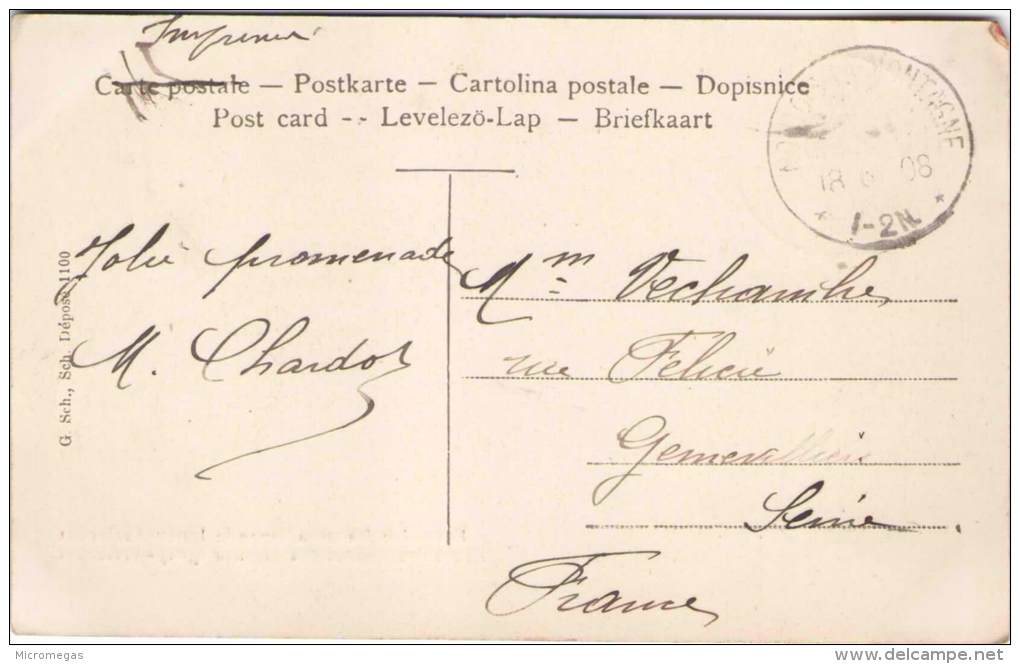 Imprimé
Carte postale — Postkarte — Cartolina postale — Dopisnice
Post card -- Levelezö-Lap — Briefkaart
MONTAGNE
18 6 08
* 1-2N. *
Jolie promenade
M. Chardot
G. Sch., Sch. Déposé 1100
Mm Vechambre
rue Félicie
Gennevilliers
Seine.
France
Micromegas
delcampe.net